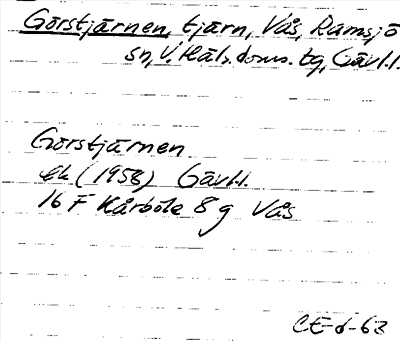 Görstjärnen, tjärn, Vås, Ramsjö
sn, V. Häls. doms. tg, Gävl.l.
Görstjärnen
Ek (1958) Gävl.l.
16 F Kårböle 8 g Vås
CE-d-63